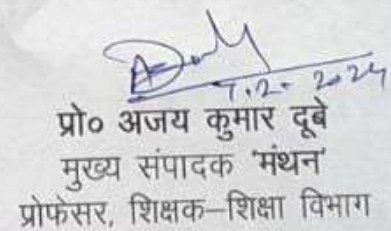 7.2.2024
प्रो० अजय कुमार दूबे
मुख्य संपादक 'मंथन'
प्रोफेसर, शिक्षक–शिक्षा विभाग